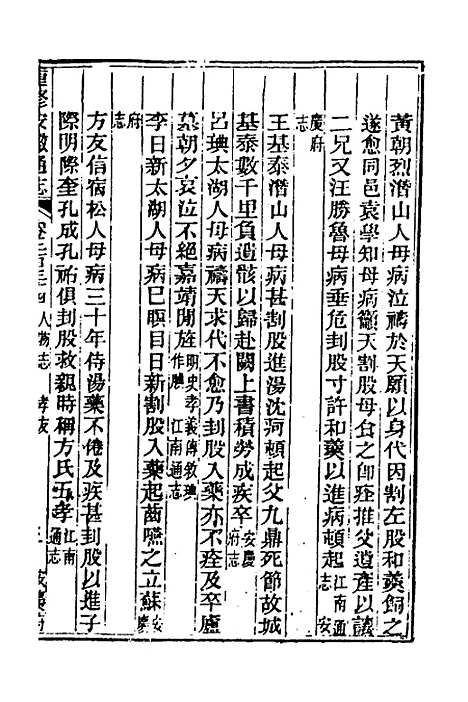 黃朝烈潛山人母病泣禱於天願以身代因割左股和羹飼之
遂愈同邑袁學知母病籲天割股母食之卽痊推父遺產以讓
二兄又汪勝魯母病垂危刲股寸許和羹以進病頓起江南通志 安
慶府志
王基泰潛山人母病甚割股進湯沈疴頓起父九鼎死節故城
基泰數千里負遺骸以歸赴闕上書積勞成疾卒安慶府志
呂㻞太湖人母病禱天求代不愈乃刲股入藥亦不痊及卒廬
墓朝夕哀泣不絕嘉靖閒旌明史孝義傳敘 江南通志
李日新太湖人母病已暝目日新割股入藥起齒嚥之立蘇安慶
府志
方友信宿松人母病三十年侍湯藥不倦及疾甚刲股以進子
際明際奎孔成孔祐俱刲股救親時稱方氏五孝江南通志
重修安徽通志 卷二百三四 人物志 孝友